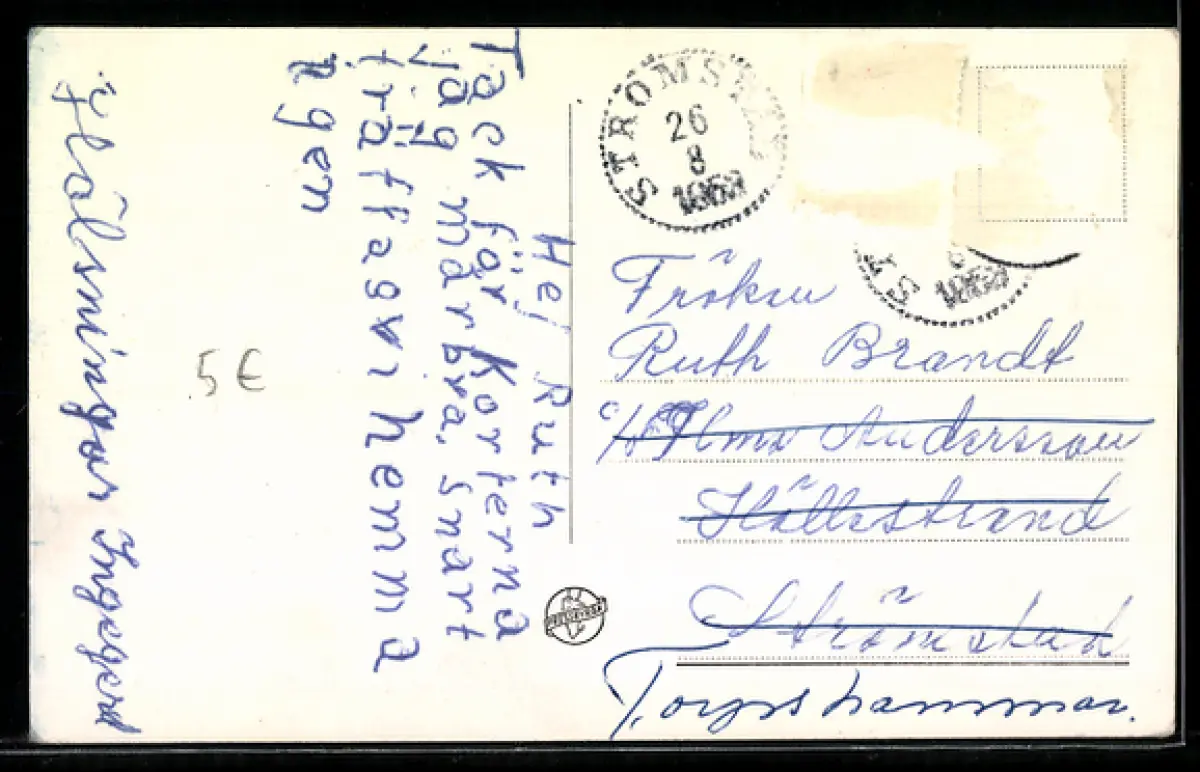 Hej Ruth
Tack för Korterna
jag mår bra, snart
träffas vi hemma
igen
Hälsningar Ingegerd
5€
STRÖMSTAD
26
8
Fröken
Ruth Brandt
c/o Andersson
Hällestrand
Strömstad
Torpshammar.